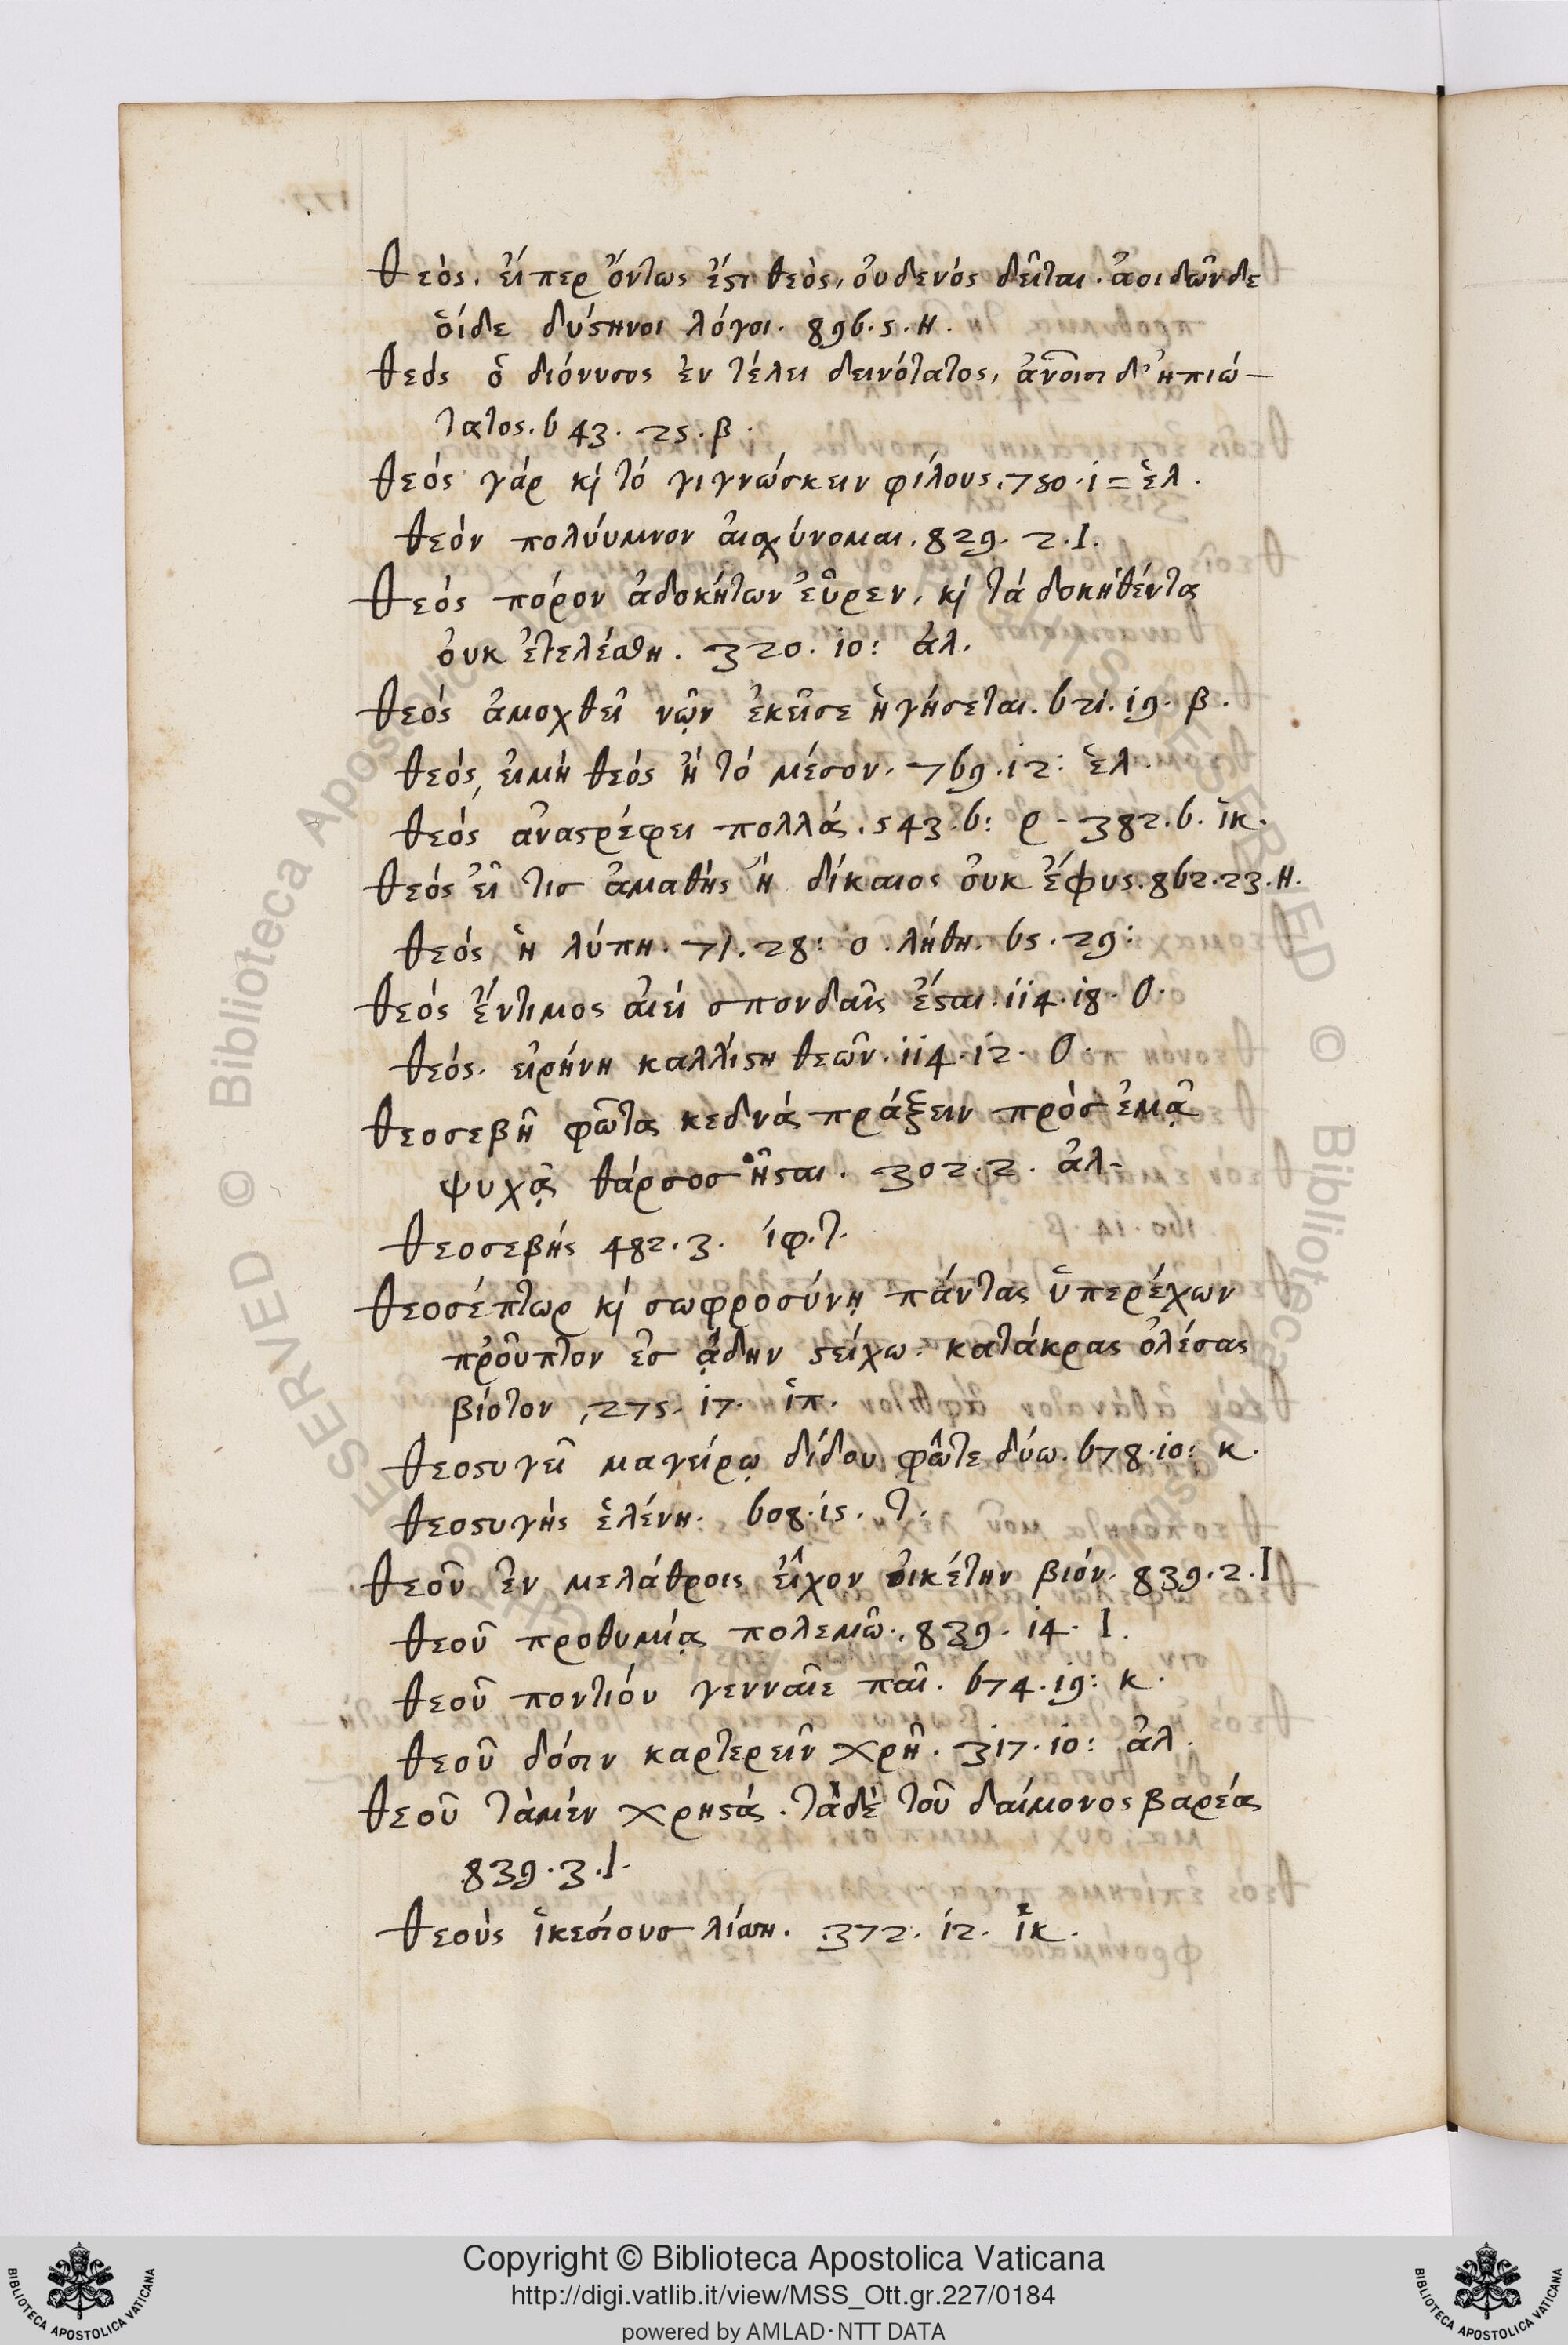 θεὸς. εἴπερ ὄντως ἐστι θεὸς, οὐδενός δεῖται. ἀοιδῶνδε
ὁίδε δύστηνοι λόγοι. 896.5.Η.
θεός ὁ διόνυσος ἐν τέλει δεινότατος, ἀνοισι δ' ἠπιώ-
τατος. 643. 25. β.
θεός γάρ κὶ τό γιγνώσκειν φίλους. 750. 1= ἑλ.
θεόν πολύυμνον αἰσχύνομαι. 829. 2. Ι.
θεός πόρον ἀδοκήτων εὗρεν, κὶ τά δοκηθέντα
ὀυκ ἐτελέσθη. 320. 10: ἀλ.
θεός ἀμοχθεὶ νῷν ἐκεῖσε ἡγήσεται. 621. 19. β.
θεός, ειμὴ θεός ἢ τό μέσον. 769. 12: ἑλ.
θεός ἀναστρέφει πολλά. 543. 6: ρ - 382. 6. ἱκ.
θεός εἶ τισ ἀμαθὴς ἢ δίκαιος ὀυκ ἔφυς. 862. 23. Η.
θεός ἡ λύπη. 71. 28: ο. λήθη. 65. 29:
θεός ἔντιμος αἰεὶ σπονδαῖς ἔσται. 114. 18. Ο.
θεός. εἰρήνη καλλίστη θεῶν. 114. 12. Ο.
θεοσεβῆ φῶτα κεδνά πράξειν πρὸσ ἐμᾷ
ψυχᾷ θάρσοσ ἧσται. 302. 2. ἀλ-
θεοσεβής 482. 3. ἰφ. τ.
θεοσέπτωρ κὶ σωφροσύνῃ πάντας ὑπερέχων
πρὀῦπτον ἐσ ᾅδην στείχω. κατάκρας ὀλέσας
βίοτον, 275. 17. ἱπ.
θεοστυγεῖ μαγείρῳ δίδου φῶτε δύω. 678. 10: κ.
θεοστυγής ἑλένη. 608. 15. τ.
θεοῦ ἐν μελάθροις εἶχον οἰκέτην βιόν. 839. 2. Ι
θεοῦ προθυμίᾳ πολεμῶ. 839. 14. Ι.
θεοῦ ποντιόυ γενναῖε παῖ. 674. 19: κ.
θεοῦ δόσιν καρτερεῖν χρῆ. 317. 10: ἀλ.
θεοῦ τὰμέν χρηστά. τὰδὲ τοῦ δαίμονος βαρέα
839. 3. Ι.
θεοὺς ἱκεσίουσ λίσση. 372. 12. ἱκ.
Copyright © Biblioteca Apostolica Vaticana
http://digi.vatlib.it/view/MSS_Ott.gr.227/0184
powered by AMLAD·NTT DATA